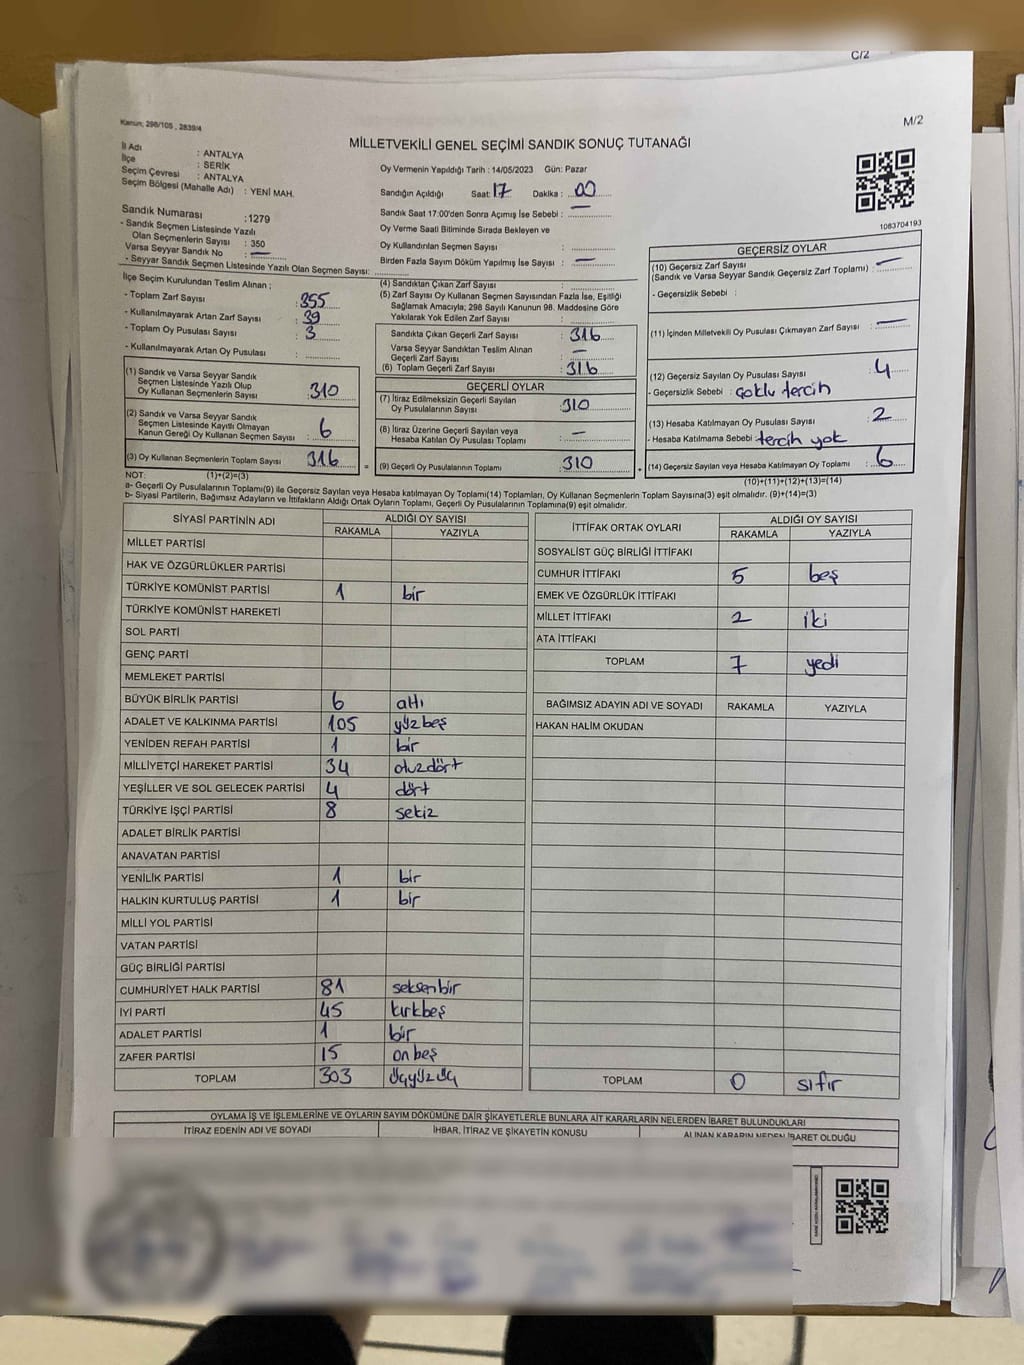 C/2
Kanun; 298/105 , 2839/4
M/2
MİLLETVEKİLİ GENEL SEÇİMİ SANDIK SONUÇ TUTANAĞI
İl Adı : ANTALYA
İlçe : SERİK
Seçim Çevresi : ANTALYA
Seçim Bölgesi (Mahalle Adı) : YENİ MAH.
Sandık Numarası :1279
- Sandık Seçmen Listesinde Yazılı
Olan Seçmenlerin Sayısı : 350
Varsa Seyyar Sandık No : —
- Seyyar Sandık Seçmen Listesinde Yazılı Olan Seçmen Sayısı:
Oy Vermenin Yapıldığı Tarih : 14/05/2023 Gün: Pazar
Sandığın Açıldığı Saat: 17 Dakika : 00
Sandık Saat 17:00'den Sonra Açımış İse Sebebi : —
Oy Verme Saati Bitiminde Sırada Bekleyen ve
Oy Kullandırılan Seçmen Sayısı :
Birden Fazla Sayım Döküm Yapılmış İse Sayısı : —
1083704193
İlçe Seçim Kurulundan Teslim Alınan ;
- Toplam Zarf Sayısı : 355
- Kullanılmayarak Artan Zarf Sayısı : 39
- Toplam Oy Pusulası Sayısı : 3
- Kullanılmayarak Artan Oy Pusulası :
(4) Sandıktan Çıkan Zarf Sayısı :
(5) Zarf Sayısı Oy Kullanan Seçmen Sayısından Fazla İse, Eşitliği
Sağlamak Amacıyla; 298 Sayılı Kanunun 98. Maddesine Göre
Yakılarak Yok Edilen Zarf Sayısı :
Sandıkta Çıkan Geçerli Zarf Sayısı : 316
Varsa Seyyar Sandıktan Teslim Alınan
Geçerli Zarf Sayısı : —
(6) Toplam Geçerli Zarf Sayısı : 316
(1) Sandık ve Varsa Seyyar Sandık
Seçmen Listesinde Yazılı Olup
Oy Kullanan Seçmenlerin Sayısı : 310
(2) Sandık ve Varsa Seyyar Sandık
Seçmen Listesinde Kayıtlı Olmayan
Kanun Gereği Oy Kullanan Seçmen Sayısı : 6
(3) Oy Kullanan Seçmenlerin Toplam Sayısı : 316
GEÇERLİ OYLAR
(7) İtiraz Edilmeksizin Geçerli Sayılan
Oy Pusulalarının Sayısı : 310
(8) İtiraz Üzerine Geçerli Sayılan veya
Hesaba Katılan Oy Pusulası Toplamı : —
= (9) Geçerli Oy Pusulalarının Toplamı : 310
GEÇERSİZ OYLAR
(10) Geçersiz Zarf Sayısı
(Sandık ve Varsa Seyyar Sandık Geçersiz Zarf Toplamı) : —
- Geçersizlik Sebebi :
(11) İçinden Milletvekili Oy Pusulası Çıkmayan Zarf Sayısı : —
(12) Geçersiz Sayılan Oy Pusulası Sayısı : 4
- Geçersizlik Sebebi : çoklu tercih
(13) Hesaba Katılmayan Oy Pusulası Sayısı : 2
- Hesaba Katılmama Sebebi : tercih yok
+ (14) Geçersiz Sayılan veya Hesaba Katılmayan Oy Toplamı : 6
NOT: (1)+(2)=(3)
(10)+(11)+(12)+(13)=(14)
a- Geçerli Oy Pusulalarının Toplamı(9) ile Geçersiz Sayılan veya Hesaba katılmayan Oy Toplamı(14) Toplamları, Oy Kullanan Seçmenlerin Toplam Sayısına(3) eşit olmalıdır. (9)+(14)=(3)
b- Siyasi Partilerin, Bağımsız Adayların ve İttifakların Aldığı Ortak Oyların Toplamı, Geçerli Oy Pusulalarının Toplamına(9) eşit olmalıdır.
SİYASİ PARTİNİN ADI ALDIĞI OY SAYISI
RAKAMLA YAZIYLA
MİLLET PARTİSİ
HAK VE ÖZGÜRLÜKLER PARTİSİ
TÜRKİYE KOMÜNİST PARTİSİ 1 bir
TÜRKİYE KOMÜNİST HAREKETİ
SOL PARTİ
GENÇ PARTİ
MEMLEKET PARTİSİ
BÜYÜK BİRLİK PARTİSİ 6 altı
ADALET VE KALKINMA PARTİSİ 105 yüzbeş
YENİDEN REFAH PARTİSİ 1 bir
MİLLİYETÇİ HAREKET PARTİSİ 34 otuzdört
YEŞİLLER VE SOL GELECEK PARTİSİ 4 dört
TÜRKİYE İŞÇİ PARTİSİ 8 sekiz
ADALET BİRLİK PARTİSİ
ANAVATAN PARTİSİ
YENİLİK PARTİSİ 1 bir
HALKIN KURTULUŞ PARTİSİ 1 bir
MİLLİ YOL PARTİSİ
VATAN PARTİSİ
GÜÇ BİRLİĞİ PARTİSİ
CUMHURİYET HALK PARTİSİ 81 seksenbir
İYİ PARTİ 45 kırkbeş
ADALET PARTİSİ 1 bir
ZAFER PARTİSİ 15 onbeş
TOPLAM 303 üçyüzüç
İTTİFAK ORTAK OYLARI ALDIĞI OY SAYISI
RAKAMLA YAZIYLA
SOSYALİST GÜÇ BİRLİĞİ İTTİFAKI
CUMHUR İTTİFAKI 5 beş
EMEK VE ÖZGÜRLÜK İTTİFAKI
MİLLET İTTİFAKI 2 iki
ATA İTTİFAKI
TOPLAM 7 yedi
BAĞIMSIZ ADAYIN ADI VE SOYADI RAKAMLA YAZIYLA
HAKAN HALİM OKUDAN
TOPLAM 0 sıfır
OYLAMA İŞ VE İŞLEMLERİNE VE OYLARIN SAYIM DÖKÜMÜNE DAİR ŞİKAYETLERLE BUNLARA AİT KARARLARIN NELERDEN İBARET BULUNDUKLARI
İTİRAZ EDENİN ADI VE SOYADI İHBAR, İTİRAZ VE ŞİKAYETİN KONUSU ALINAN KARARIN NEDEN İBARET OLDUĞU